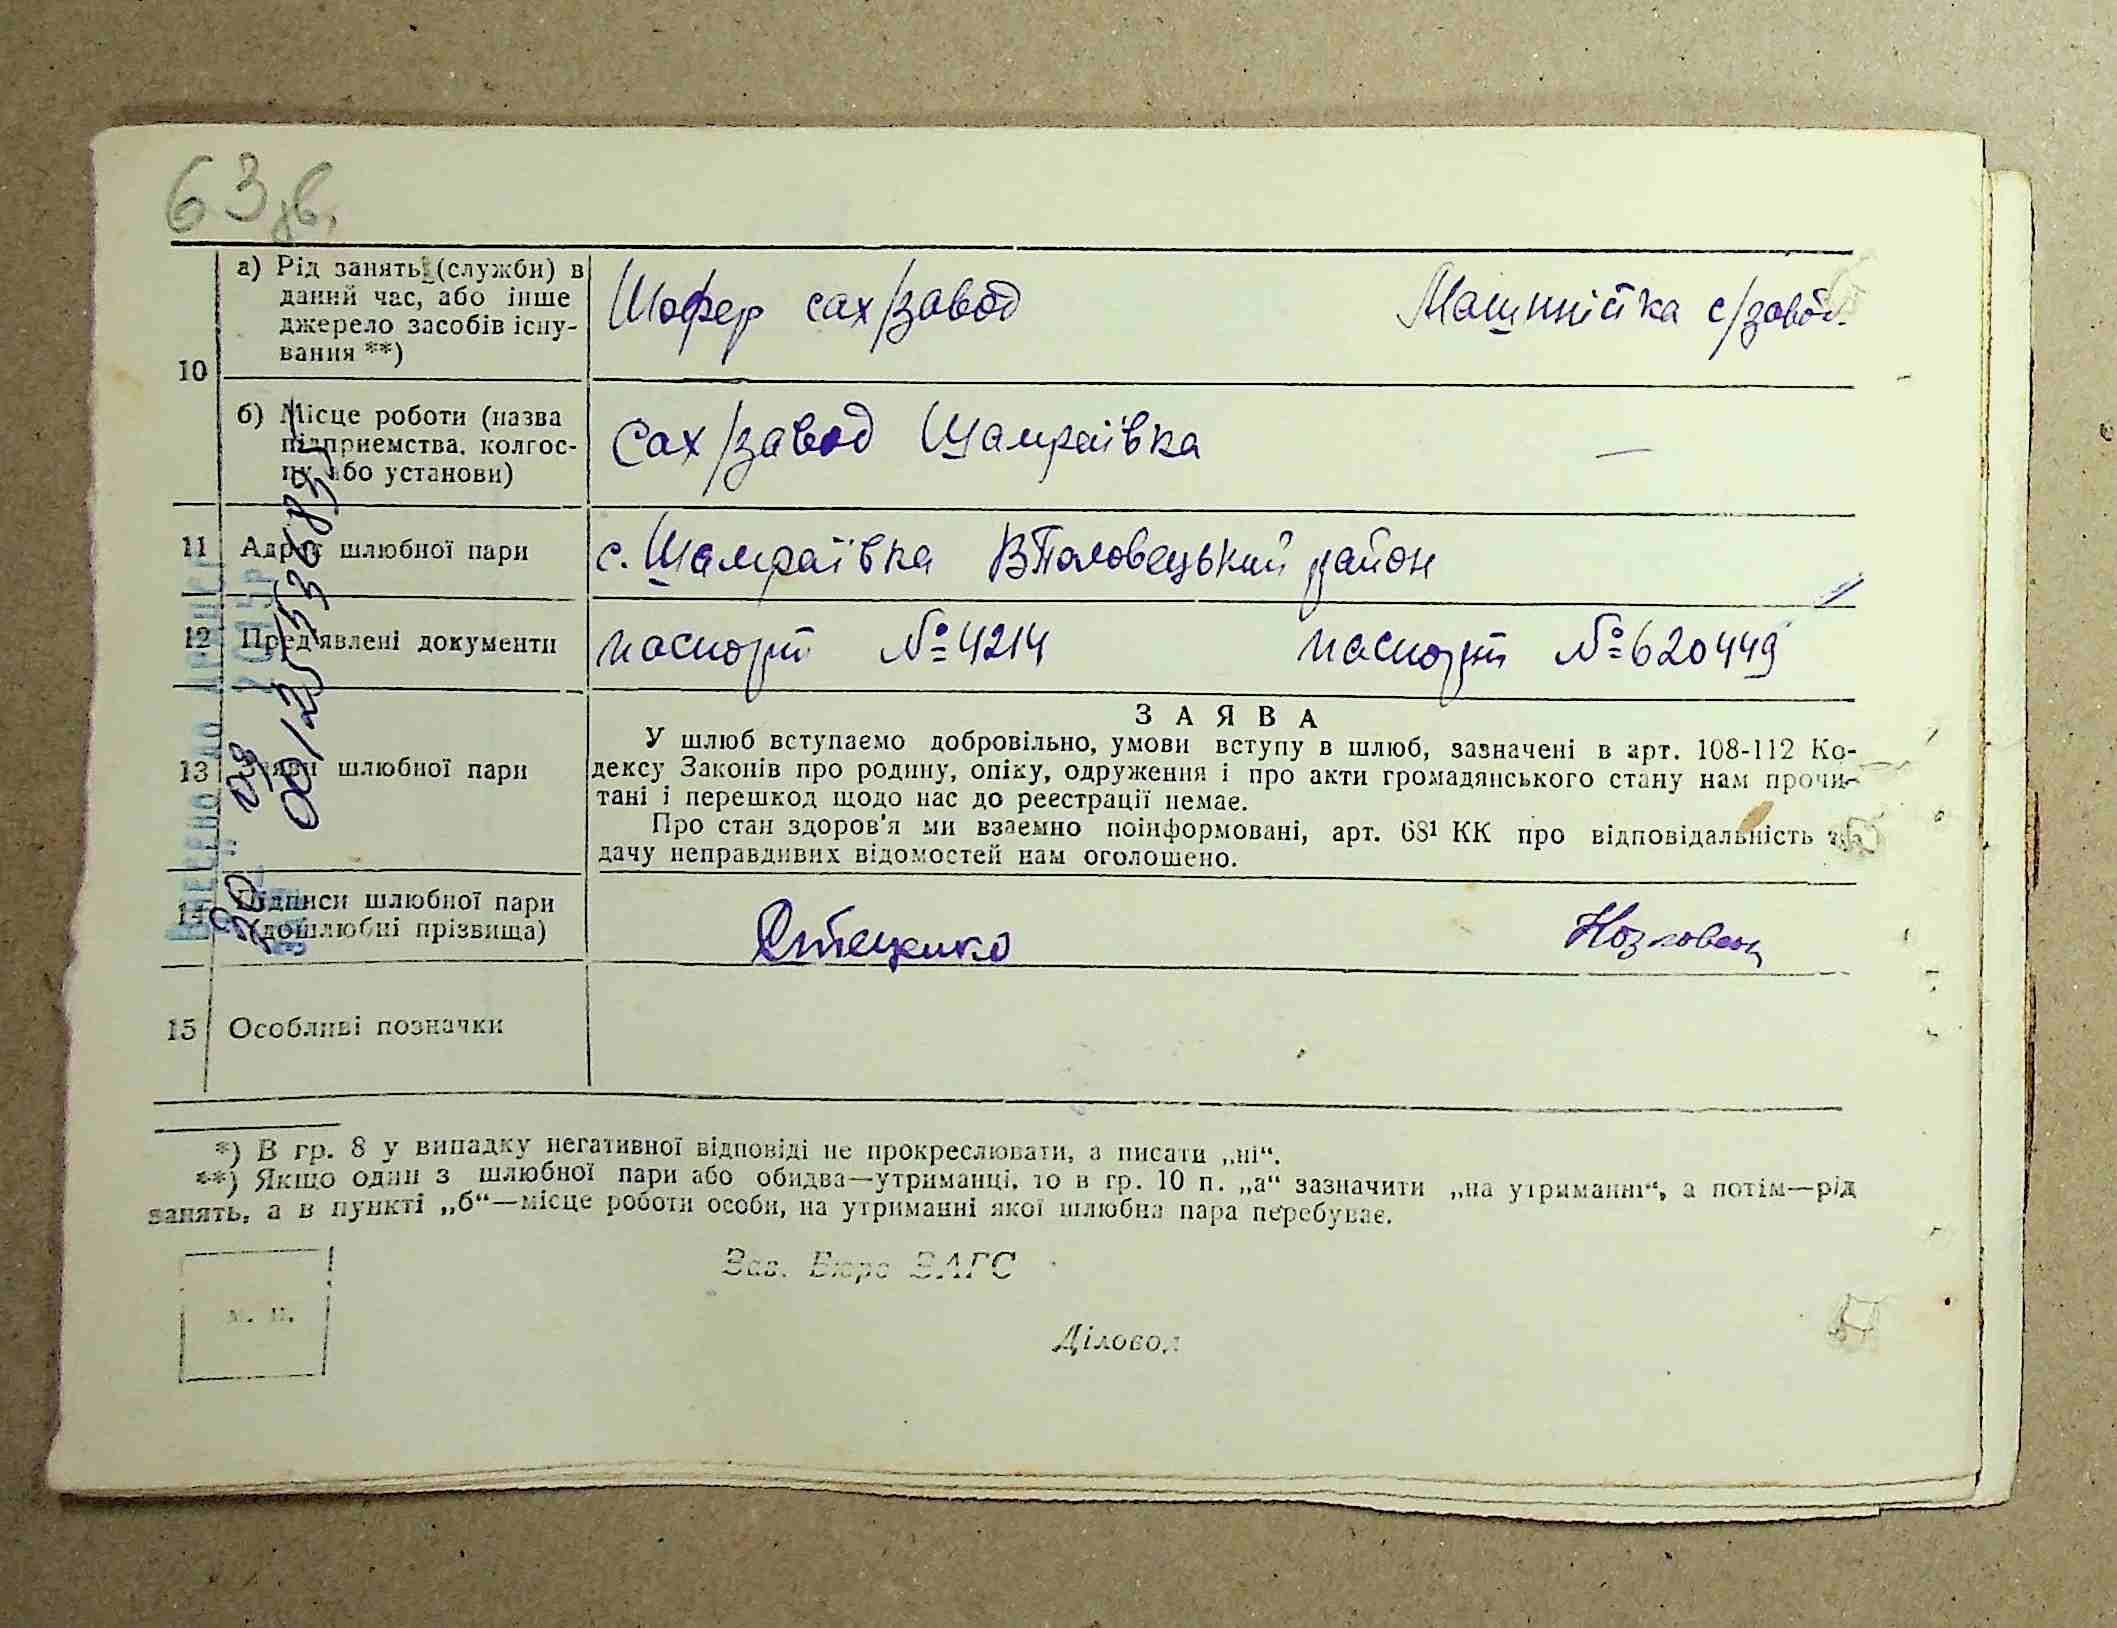 63 зв.
10
а) Рід занять (служби) в
даний час, або інше
джерело засобів існу-
вання **)
Шофер сах/завод
Машинистка с/завод.
б) Місце роботи (назва
підприємства, колгос-
пу або установи)
Сах/завод Шамраївка
—
11 Адрес шлюбної пари
с. Шамраївка ВПоловецький район
12 Пред'явлені документи
паспорт №4214
паспорт №620449
13 Заяви шлюбної пари
ЗАЯВА
У шлюб вступаємо добровільно, умови вступу в шлюб, зазначені в арт. 108-112 Ко-
дексу Законів про родину, опіку, одруження і про акти громадянського стану нам прочи-
тані і перешкод щодо нас до реєстрації немає.
Про стан здоров'я ми взаємно поінформовані, арт. 68¹ КК про відповідальність за
дачу неправдивих відомостей нам оголошено.
14 Підписи шлюбної пари
(дошлюбні прізвища)
15 Особливі позначки
*) В гр. 8 у випадку негативної відповіді не прокреслювати, а писати „ні“.
**) Якщо один з шлюбної пари або обидва—утриманці, то в гр. 10 п. „а“ зазначити „на утриманні“, а потім—рід
занять, а в пункті „б“—місце роботи особи, на утриманні якої шлюбна пара перебуває.
Зав. Бюро ЗАГС
М. П.
Діловод